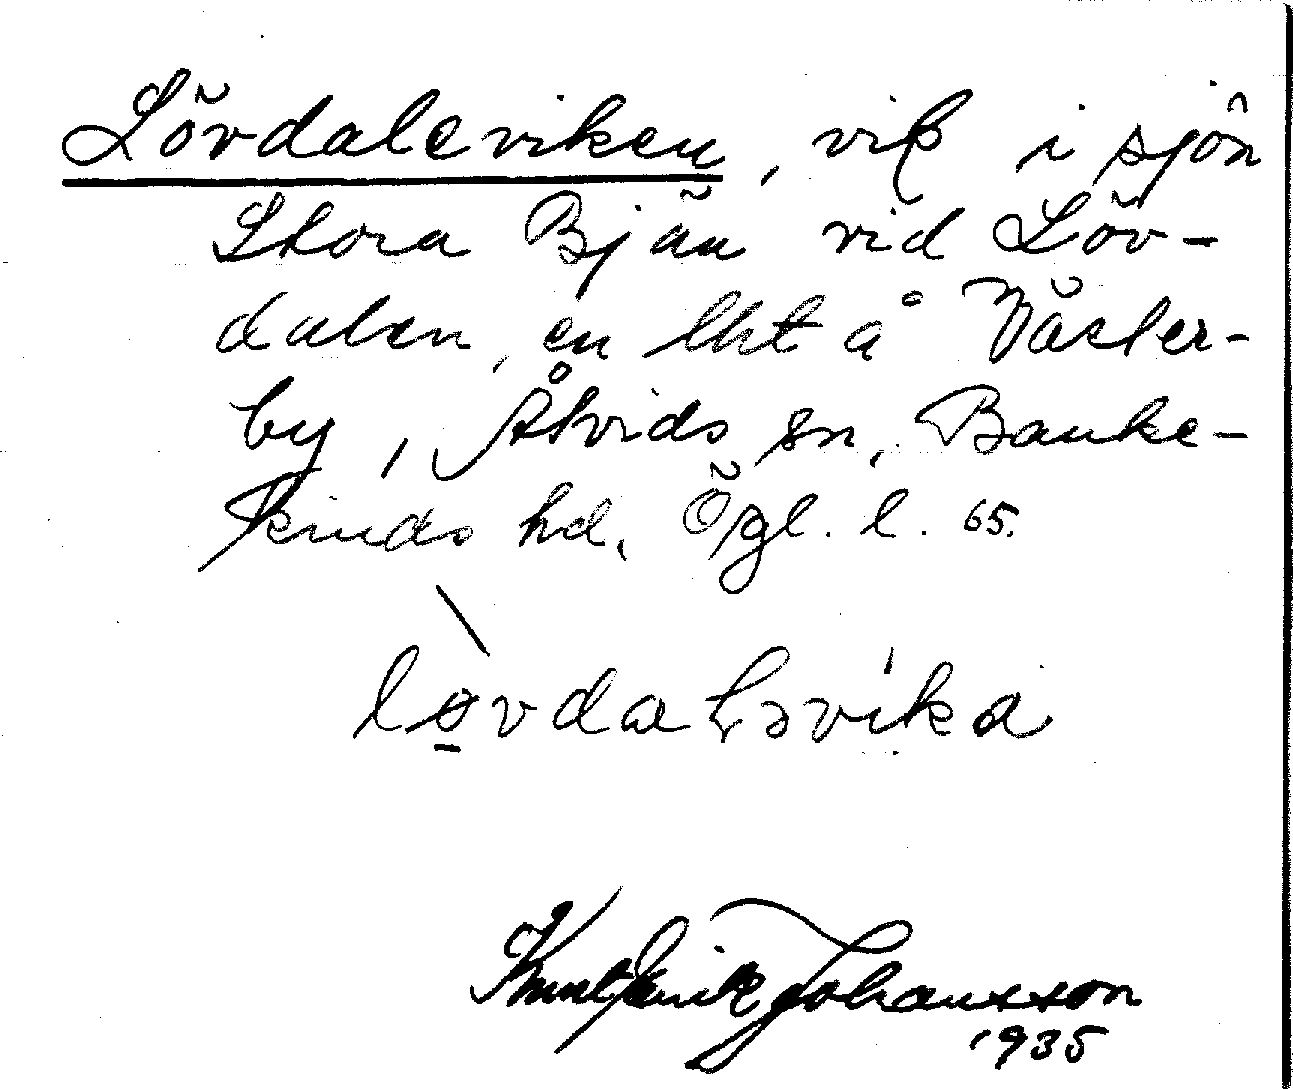 Lövdaleviken, vik i sjön
Stora Bjän vid Löv-
dalen, en lht å Väster-
by, Åtvids sn, Banke-
kinds hd, Ögl. l. 65.
Johansson
1935